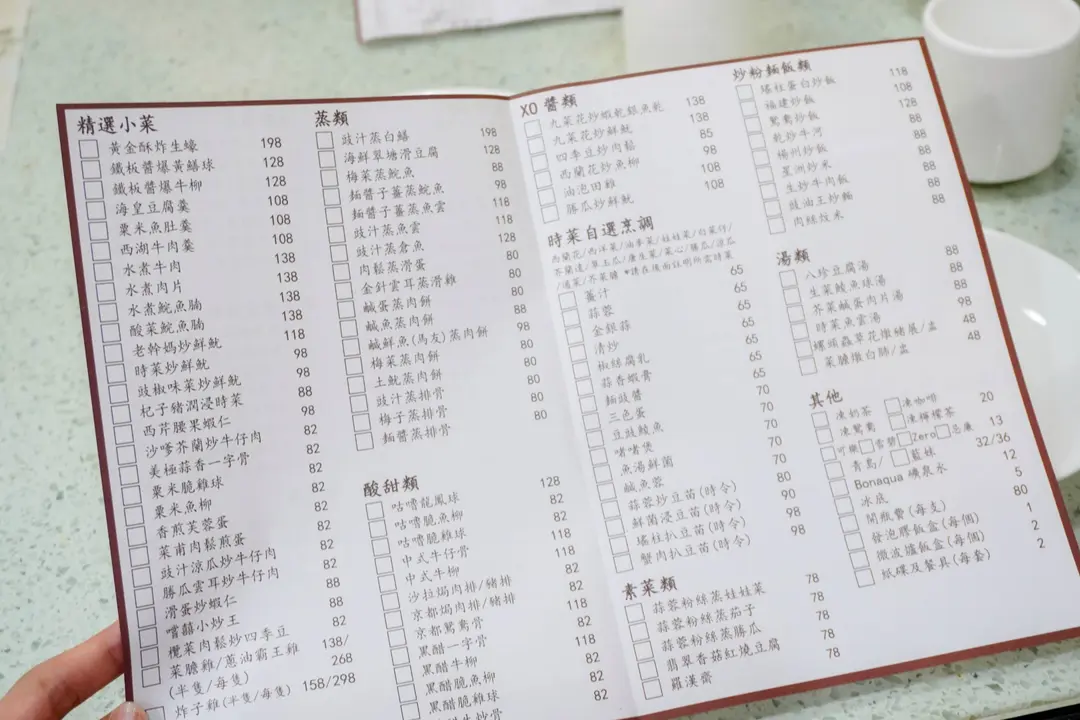 精選小菜
黃金酥炸生蠔 198
鐵板醬爆黃鱔球 128
鐵板醬爆牛柳 128
海皇豆腐羹 108
粟米魚肚羹 108
西湖牛肉羹 108
水煮牛肉 138
水煮肉片 138
水煮鯇魚腩 138
酸菜鯇魚腩 138
老幹媽炒鮮魷 118
時菜炒鮮魷 98
豉椒味菜炒鮮魷 98
杞子豬潤浸時菜 88
西芹腰果蝦仁 98
沙嗲芥蘭炒牛仔肉 82
美極蒜香一字骨 82
粟米脆雞球 82
粟米魚柳 82
香煎芙蓉蛋 82
菜甫肉鬆煎蛋 82
豉汁涼瓜炒牛仔肉 82
勝瓜雲耳炒牛仔肉 82
滑蛋炒蝦仁 88
嚐囍小炒王 88
欖菜肉鬆炒四季豆 82
菜膽雞/蔥油霸王雞 138/
(半隻/每隻) 268
炸子雞(半隻/每隻) 158/298
蒸類
豉汁蒸白鱔 198
海鮮翠塘滑豆腐 128
梅菜蒸鯇魚 88
麵醬子薑蒸鯇魚 98
麵醬子薑蒸魚雲 118
豉汁蒸魚雲 118
豉汁蒸倉魚 128
肉鬆蒸滑蛋 80
金針雲耳蒸滑雞 80
鹹蛋蒸肉餅 80
鹹魚蒸肉餅 88
鹹鮮魚(馬友)蒸肉餅 98
梅菜蒸肉餅 80
土魷蒸肉餅 80
豉汁蒸排骨 80
梅子蒸排骨 80
麵醬蒸排骨 80
酸甜類
咕嚕龍鳳球 128
咕嚕脆魚柳 82
咕嚕脆雞球 82
中式牛仔骨 118
中式牛柳 118
沙拉焗肉排/豬排 82
京都焗肉排/豬排 82
京都鴛鴦骨 118
黑醋一字骨 82
黑醋牛柳 118
黑醋脆魚柳 82
黑醋脆雞球 82
82
XO醬類
九菜花炒蝦乾銀魚乾 138
九菜花炒鮮魷 138
四季豆炒肉鬆 85
西蘭花炒魚柳 98
油泡田雞 108
勝瓜炒鮮魷 108
時菜自選烹調
西蘭花/西洋菜/油麥菜/娃娃菜/白菜仔/
芥蘭遠/翠玉瓜/唐生菜/菜心/勝瓜/涼瓜
/通菜/芥菜膽 *請在後面註明所需時菜
薑汁 65
蒜蓉 65
金銀蒜 65
清炒 65
椒絲腐乳 65
蒜香蝦膏 65
麵豉醬 65
三色蛋 70
豆豉鯪魚 70
啫啫煲 70
魚湯鮮菌 70
鹹魚蓉 70
蒜蓉炒豆苗(時令) 80
鮮菌浸豆苗(時令) 90
瑤柱扒豆苗(時令) 98
蟹肉扒豆苗(時令) 98
素菜類
蒜蓉粉絲蒸娃娃菜 78
蒜蓉粉絲蒸茄子 78
蒜蓉粉絲蒸勝瓜 78
翡翠香菇紅燒豆腐 78
羅漢齋 78
炒粉麵飯類
瑤柱蛋白炒飯 118
福建炒飯 108
鴛鴦炒飯 128
乾炒牛河 88
楊州炒飯 88
星洲炒米 88
生炒牛肉飯 88
豉油王炒麵 88
肉絲炆米 88
湯類
八珍豆腐湯 88
生菜鯪魚球湯 88
芥菜鹹蛋肉片湯 88
時菜魚雲湯 98
螺頭蟲草花燉豬展/盅 48
菜膽燉白肺/盅 48
其他
凍奶茶 凍咖啡 20
凍鴛鴦 凍檸檬茶
可樂 雪碧 Zero 忌廉 13
青島/ 藍妹 32/36
Bonaqua 礦泉水 12
冰底 5
開瓶費(每支) 80
發泡膠飯盒(每個) 1
微波爐飯盒(每個) 2
紙碟及餐具(每套) 2